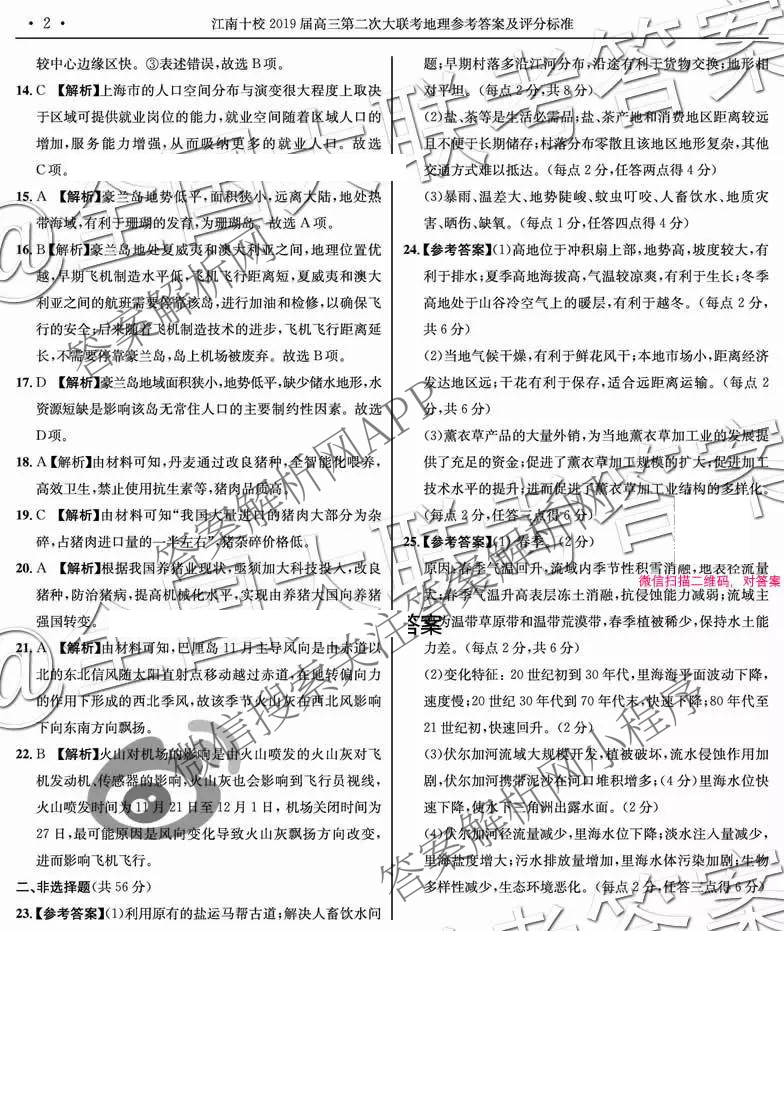 · 2 ·
江南十校 2019 届高三第二次大联考地理参考答案及评分标准
较中心边缘区快。③表述错误,故选 B 项。
14. C 【解析】上海市的人口空间分布与演变很大程度上取决
于区域可提供就业岗位的能力,就业空间随着区域人口的
增加,服务能力增强,从而吸纳更多的就业人口。故选
C 项。
15. A 【解析】豪兰岛地势低平,面积狭小,远离大陆,地处热
带海域,有利于珊瑚的发育,为珊瑚岛。故选 A 项。
16. B【解析】豪兰岛地处夏威夷和澳大利亚之间,地理位置优
越,早期飞机制造水平低,飞机飞行距离短,夏威夷和澳大
利亚之间的航班需要停靠该岛,进行加油和检修,以确保飞
行的安全;后来随着飞机制造技术的进步,飞机飞行距离延
长,不需要停靠豪兰岛,岛上机场被废弃。故选 B 项。
17. D 【解析】豪兰岛地域面积狭小,地势低平,缺少储水地形,水
资源短缺是影响该岛无常住人口的主要制约性因素。故选
D 项。
18. A【解析】由材料可知,丹麦通过改良猪种,全智能化喂养,
高效卫生,禁止使用抗生素等,猪肉品质高。
19. C 【解析】由材料可知“我国大量进口的猪肉大部分为杂
碎,占猪肉进口量的一半左右”,猪杂碎价格低。
20. A 【解析】根据我国养猪业现状,亟须加大科技投入,改良
猪种,防治猪病,提高机械化水平,实现由养猪大国向养猪
强国转变。
21. A 【解析】由材料可知,巴厘岛 11 月主导风向是由赤道以
北的东北信风随太阳直射点移动越过赤道,在地转偏向力
的作用下形成的西北季风,故该季节火山灰在西北风影响
下向东南方向飘扬。
22. B 【解析】火山对机场的影响是由火山喷发的火山灰对飞
机发动机、传感器的影响,火山灰也会影响到飞行员视线,
火山喷发时间为 11 月 21 日至 12 月 1 日,机场关闭时间为
27 日,最可能原因是风向变化导致火山灰飘扬方向改变,
进而影响飞机飞行。
二、非选择题(共 56 分)
23.【参考答案】(1)利用原有的盐运马帮古道;解决人畜饮水问
题;早期村落多沿江河分布,沿途有利于货物交换;地形相
对平坦。(每点 2 分,共 8 分)
(2)盐、茶等是生活必需品;盐、茶产地和消费地区距离较远
且不便于长期储存;村落分布零散且该地区地形复杂,其他
交通方式难以抵达。(每点 2 分,任答两点得 4 分)
(3)暴雨、温差大、地势陡峻、蚊虫叮咬、人畜饮水、地质灾
害、晒伤、缺氧。(每点 1 分,任答四点得 4 分)
24.【参考答案】(1)高地位于冲积扇上部,地势高,坡度较大,有
利于排水;夏季高地海拔高,气温较凉爽,有利于生长;冬季
高地处于山谷冷空气上的暖层,有利于越冬。(每点 2 分,
共 6 分)
(2)当地气候干燥,有利于鲜花风干;本地市场小,距离经济
发达地区远;干花有利于保存,适合远距离运输。(每点 2
分,共 6 分)
(3)薰衣草产品的大量外销,为当地薰衣草加工业的发展提
供了充足的资金;促进了薰衣草加工规模的扩大;促进加工
技术水平的提升;进而促进了薰衣草加工业结构的多样化。
(每点 2 分,任答三点得 6 分)
25.【参考答案】(1)春季。(2 分)
原因:春季气温回升,流域内季节性积雪消融,地表径流量
微信扫描二维码,对答案
大;春季气温升高表层冻土消融,抗侵蚀能力减弱;流域主
答案
为温带草原带和温带荒漠带,春季植被稀少,保持水土能
力差。(每点 2 分,共 6 分)
(2)变化特征:20 世纪初到 30 年代,里海海平面波动下降,
速度慢;20 世纪 30 年代到 70 年代末,快速下降;80 年代至
21 世纪初,快速回升。(2 分)
(3)伏尔加河流域大规模开发,植被破坏,流水侵蚀作用加
剧,伏尔加河携带泥沙在河口堆积增多;(4 分)里海水位快
速下降,使水下三角洲出露水面。(2 分)
(4)伏尔加河径流量减少,里海水位下降;淡水注入量减少,
里海盐度增大;污水排放量增加,里海水体污染加剧;生物
多样性减少,生态环境恶化。(每点 2 分,任答三点得 6 分)
@全国大联考答案
答案解析网APP
微信搜索关注答案解析网
答案解析网小程序